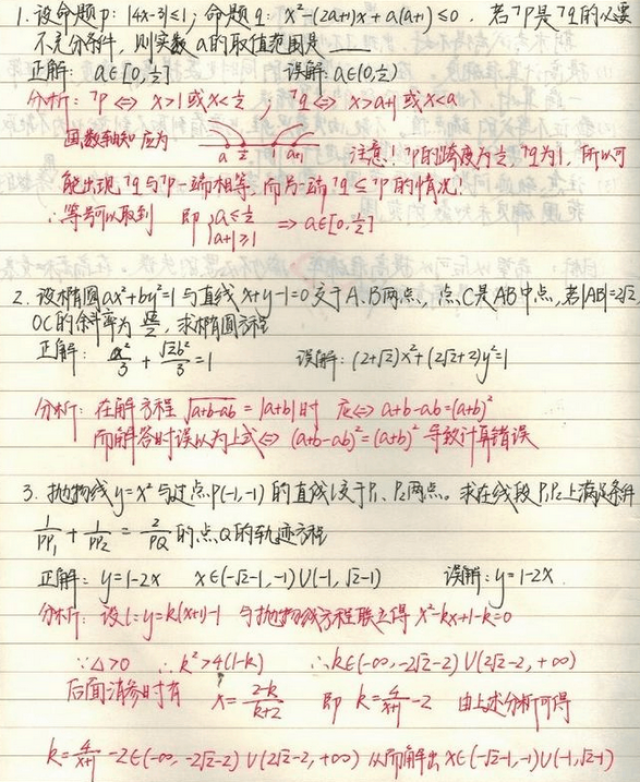 1. 设命题p: |4x-3|≤1; 命题q: x²-(2a+1)x+a(a+1)≤0. 若¬p是¬q的必要
不充分条件, 则实数a的取值范围是 ____
正解: a∈[0,½] 误解: a∈(0,½)
分析: ¬p ⇔ x>1或x<½; ¬q ⇔ x>a+1或x<a
因数轴知 应为 a ½ 1 a+1 注意! ¬p的跨度为½, ¬q为1, 所以可
能出现¬q与¬p一端相等, 而另一端¬q≤¬p的情况!
∴等号可以取到 即{a≤½ a+1≥1 ⇒ a∈[0,½]
2. 设椭圆ax²+by²=1与直线x+y-1=0交于A、B两点, 点C是AB中点, 若|AB|=2√2,
OC的斜率为√2/2, 求椭圆方程
正解: x²/3 + √2y²/3 =1 误解: (2+√2)x²+(2√2+2)y²=1
分析: 在解方程 √a+b-ab = |a+b|时 应⇔ a+b-ab=(a+b)²
而解答时误以为上式⇔ (a+b-ab)²=(a+b)² 导致计算错误
3. 抛物线y=x²与过点P(-1,-1)的直线l交于P₁、P₂两点。求在线段P₁P₂上满足条件
1/PP₁ + 1/PP₂ = 2/PQ 的点Q的轨迹方程
正解: y=1-2x x∈(-√2-1,-1)∪(-1,√2-1) 误解: y=1-2x.
分析: 设l: y=k(x+1)-1 与抛物线方程联立得 x²-kx+1-k=0
∵△>0 ∴k²>4(1-k) ∴k∈(-∞,-2√2-2)∪(2√2-2,+∞)
后面消参时有 x=2-k/k+2 即 k=4/x+1 -2 由上述分析可得
k=4/x+1 -2∈(-∞,-2√2-2)∪(2√2-2,+∞) 从而解出x∈(-√2-1,-1)∪(-1,√2-1)